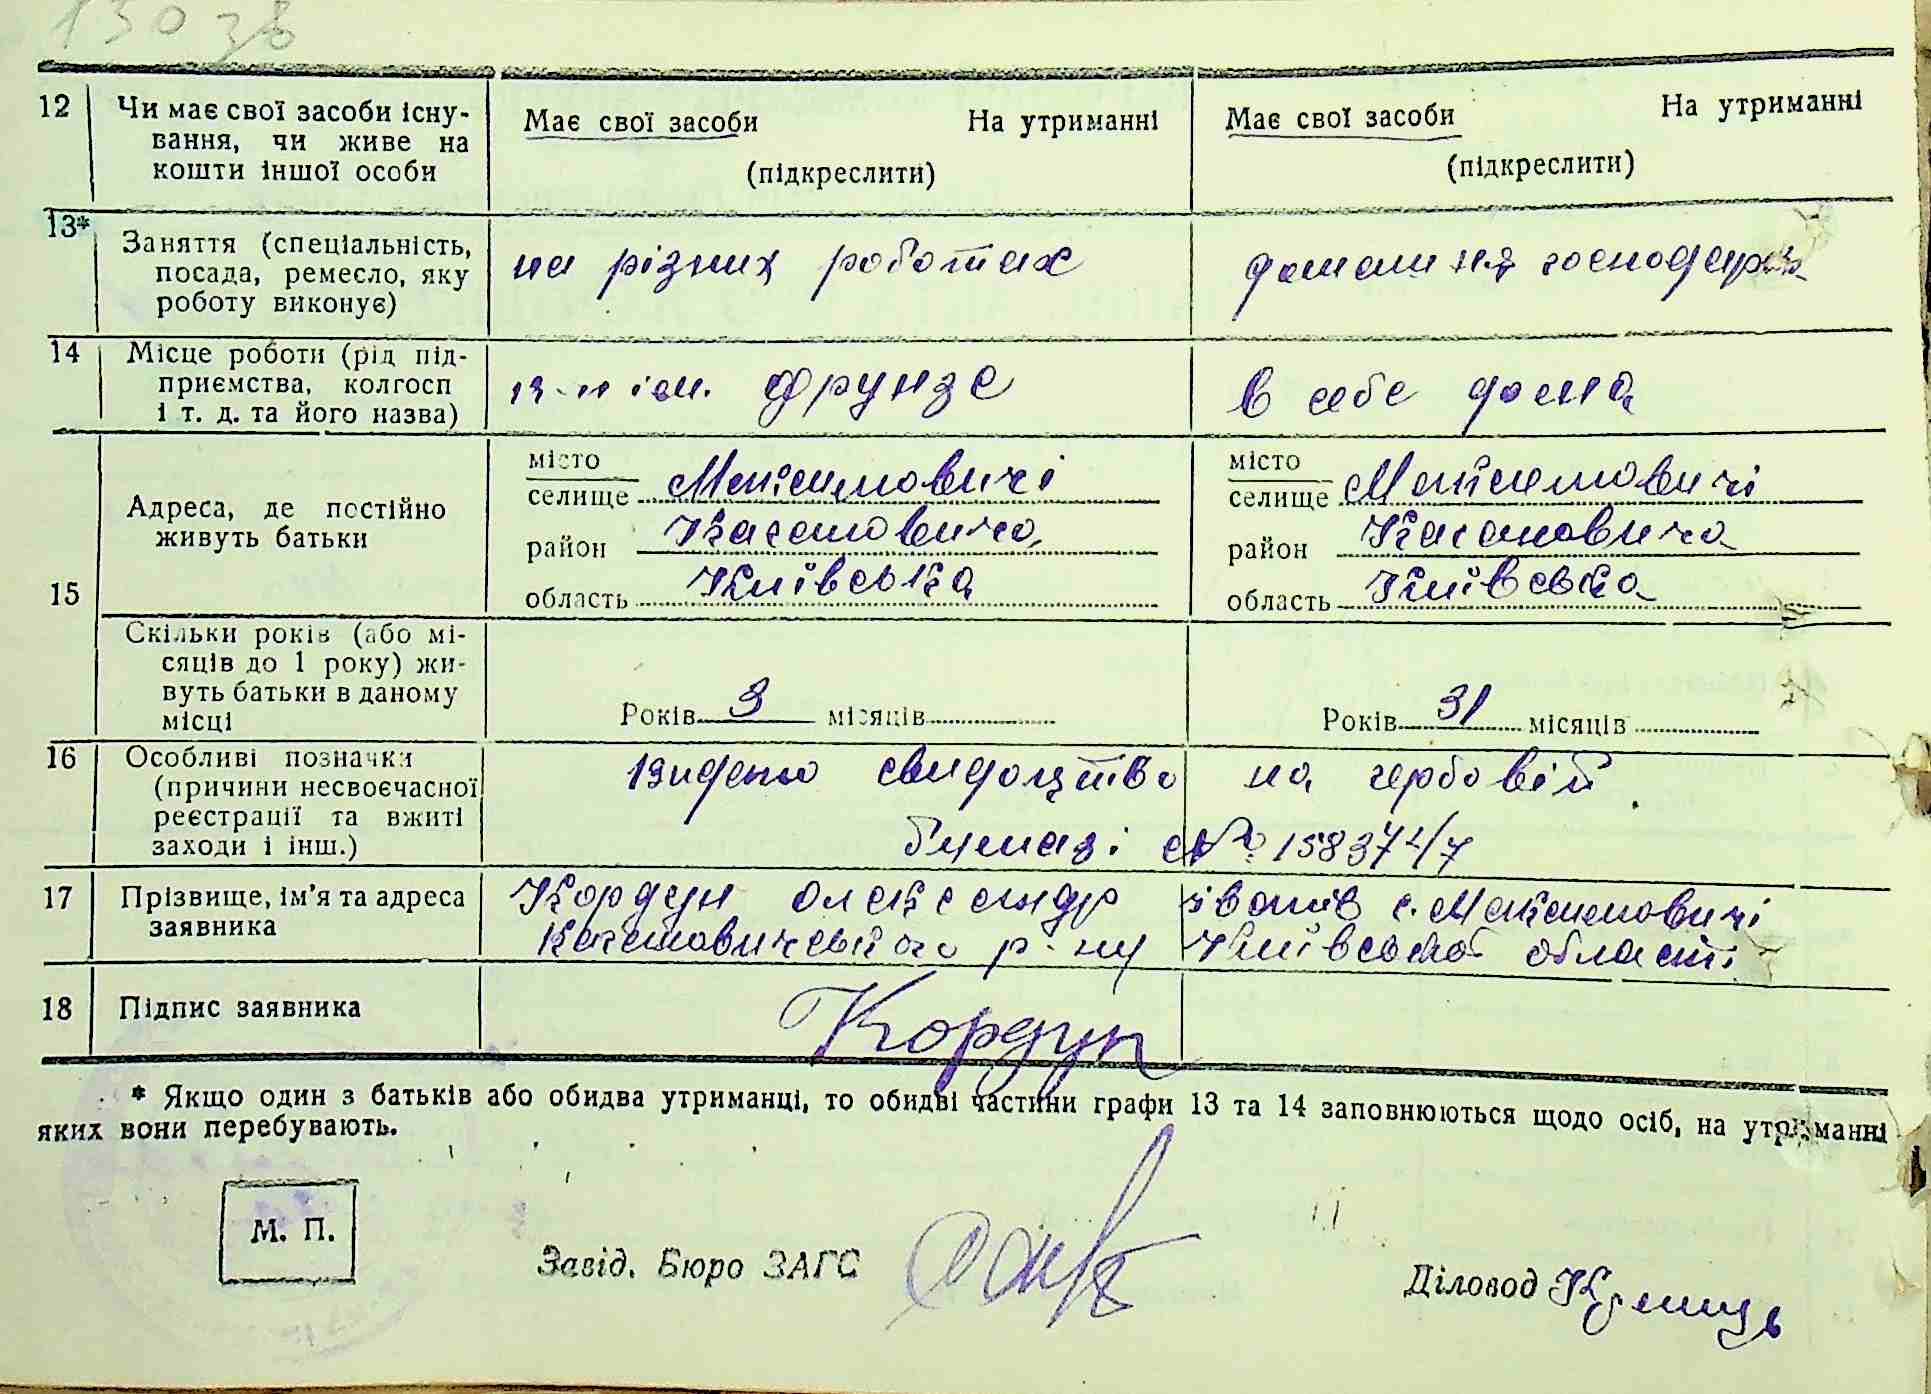 130 зв
12 Чи має свої засоби існу- Має свої засоби На утриманні Має свої засоби На утриманні
вання, чи живе на
кошти іншої особи (підкреслити) (підкреслити)
13* Заняття (спеціальність,
посада, ремесло, яку на різних роботах домашня господарка
роботу виконує)
14 Місце роботи (рід під-
приємства, колгосп ім. Фрунзе в себе дома
і т. д. та його назва)
15 Адреса, де постійно
живуть батьки
місто
селище Максимовичі
район Кагановича
область Київська
місто
селище Максимовичі
район Кагановича
область Київська
Скільки років (або мі-
сяців до 1 року) жи-
вуть батьки в даному
місці
Років 3 місяців
Років 31 місяців
16 Особливі позначки Видано свидоцтво на гербовій
(причини несвоєчасної
реєстрації та вжиті бумазі №
заходи і інш.)
17 Прізвище, ім'я та адреса Кордун Олександр Іванів с. Максимовичі
заявника Кагановичського р-ну Київської області
18 Підпис заявника Кордун
* Якщо один з батьків або обидва утриманці, то обидві частини графи 13 та 14 заповнюються щодо осіб, на утриманні
яких вони перебувають.
М. П.
Завід. Бюро ЗАГС
Діловод